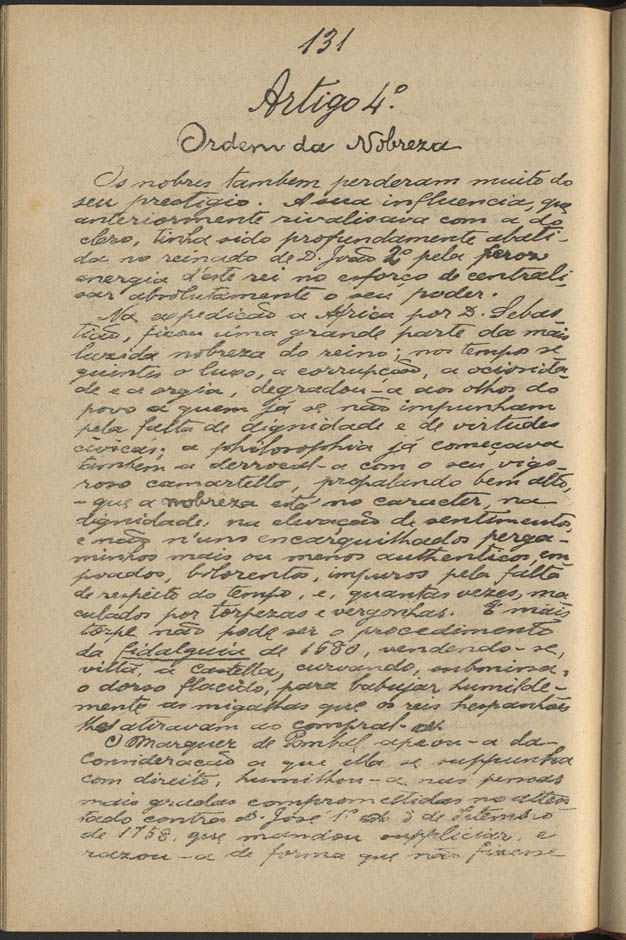 131
Artigo 4º.
Ordem da Nobreza
Os nobres tambem perderam muito do
seu prestigio. A sua influencia, que
anteriormente rivalisava com a do
clero, tinha sido profundamente abati-
da no reinado de D. João 2º pela feroz
energia d'este rei no esforço de centrali-
sar absolutamente o seu poder.
Na expedição a Africa por D. Sebas
tião, ficou uma grande parte da mais
luzida nobreza do reino; nos tempos se
guintes o luxo, a corrupção, a ociosida-
de e a orgia, degradou-a aos olhos do
povo a quem já se não impunham
pela falta de dignidade e de virtudes
civicas; a philosophia já começava
tambem a derrocal-a com o seu vigo-
roso camartello, propalando bem alto,
- que a nobreza está no caracter, na
dignidade, na elevação de sentimentos,
e não n'uns encarquilhados perga-
minhos mais ou menos authenticos, em
poados, bolorentos, impuros pela falta
de respeito do tempo, e, quantas vezes, ma
culados por torpezas e vergonhas. E mais
torpe não pode ser o procedimento
da fidalguia de 1680, vendendo-se,
villã, a Castella, curvando, submissa,
o dorso flacido, para babujar humilde-
mente as migalhas que os reis hespanhóes
lhes atiravam ao compral-os.
O Marquez de Pombal apeou-a da
consideração a que ella se suppunha
com direito, humilhou-a nas pessoas
mais gradas compromettidas no atten
tado contra D. José 1º de 3 de Setembro
de 1758, que mandou suppliciar, e
razou-a de forma que não fizesse